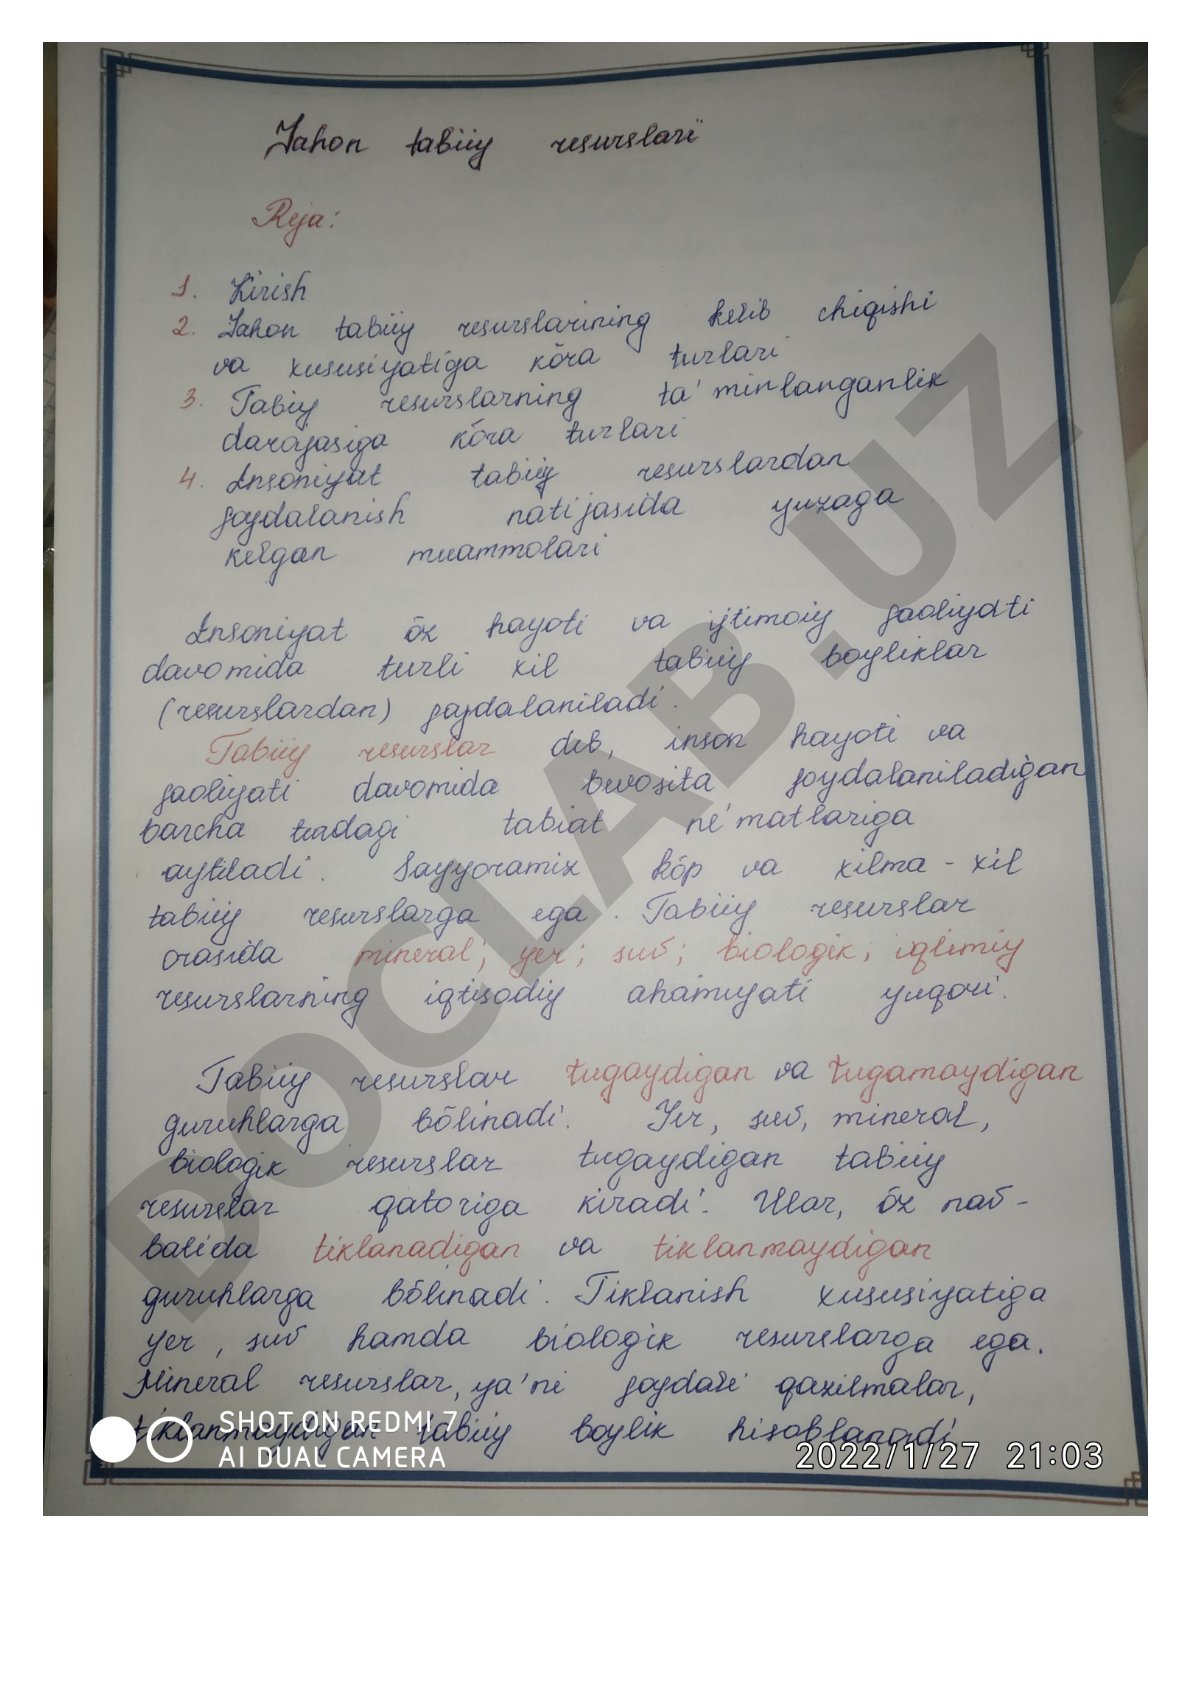 Jahon tabiiy resurslari
Reja:
1. Kirish
2. Jahon tabiiy resurslarining kelib chiqishi
va xususiyatiga kōra turlari
3. Tabiiy resurslarning ta'minlanganlik
darajasiga kōra turlari
4. Insoniyat tabiiy resurslardan
foydalanish natijasida yuzaga
kelgan muammolari
Insoniyat ōz hayoti va ijtimoiy faoliyati
davomida turli xil tabiiy boyliklar
(resurslardan) foydalaniladi.
Tabiiy resurslar deb, inson hayoti va
faoliyati davomida bevosita foydalaniladigan
barcha turdagi tabiat ne'matlariga
aytiladi. Sayyoramiz kōp va xilma-xil
tabiiy resurslarga ega. Tabiiy resurslar
orasida mineral; yer; suv; biologik; iqlimiy
resurslarning iqtisodiy ahamiyati yuqori.
Tabiiy resurslar tugaydigan va tugamaydigan
guruhlarga bōlinadi. Yer, suv, mineral,
biologik resurslar tugaydigan tabiiy
resurslar qatoriga kiradi. Ular, ōz nav-
batida tiklanadigan va tiklanmaydigan
guruhlarga bōlinadi. Tiklanish xususiyatiga
yer, suv hamda biologik resurslarga ega.
Mineral resurslar, ya'ni foydali qazilmalar,
tiklanmaydigan tabiiy boylik hisoblanadi
SHOT ON REDMI 7
AI DUAL CAMERA
2022/1/27 21:03
DOCLAB.UZ